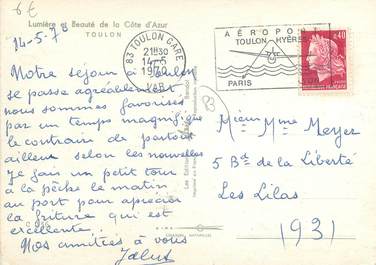 6€
Lumière et Beauté de la Côte d'Azur
TOULON
14-5-70
83 TOULON GARE
21H30
14-5
VAR
AÉROPORT
TOULON-HYÈRES
PARIS
LYON
0,40
RÉPUBLIQUE FRANÇAISE
Notre séjour à Toulon
se passe agréablement
nous sommes favorisés
par un temps magnifique
le contraire de partout
ailleur selon les nouvelles
Je fais un petit tour
à la pêche le matin
au port pour aprécier
la friture qui est
excellente.
Nos amitiés à vous
Les Editions
Bandol
Mr im Mme Meyer
5 Bd de la Liberté
Les Lilas
(93)
COULEURS NATURELLES